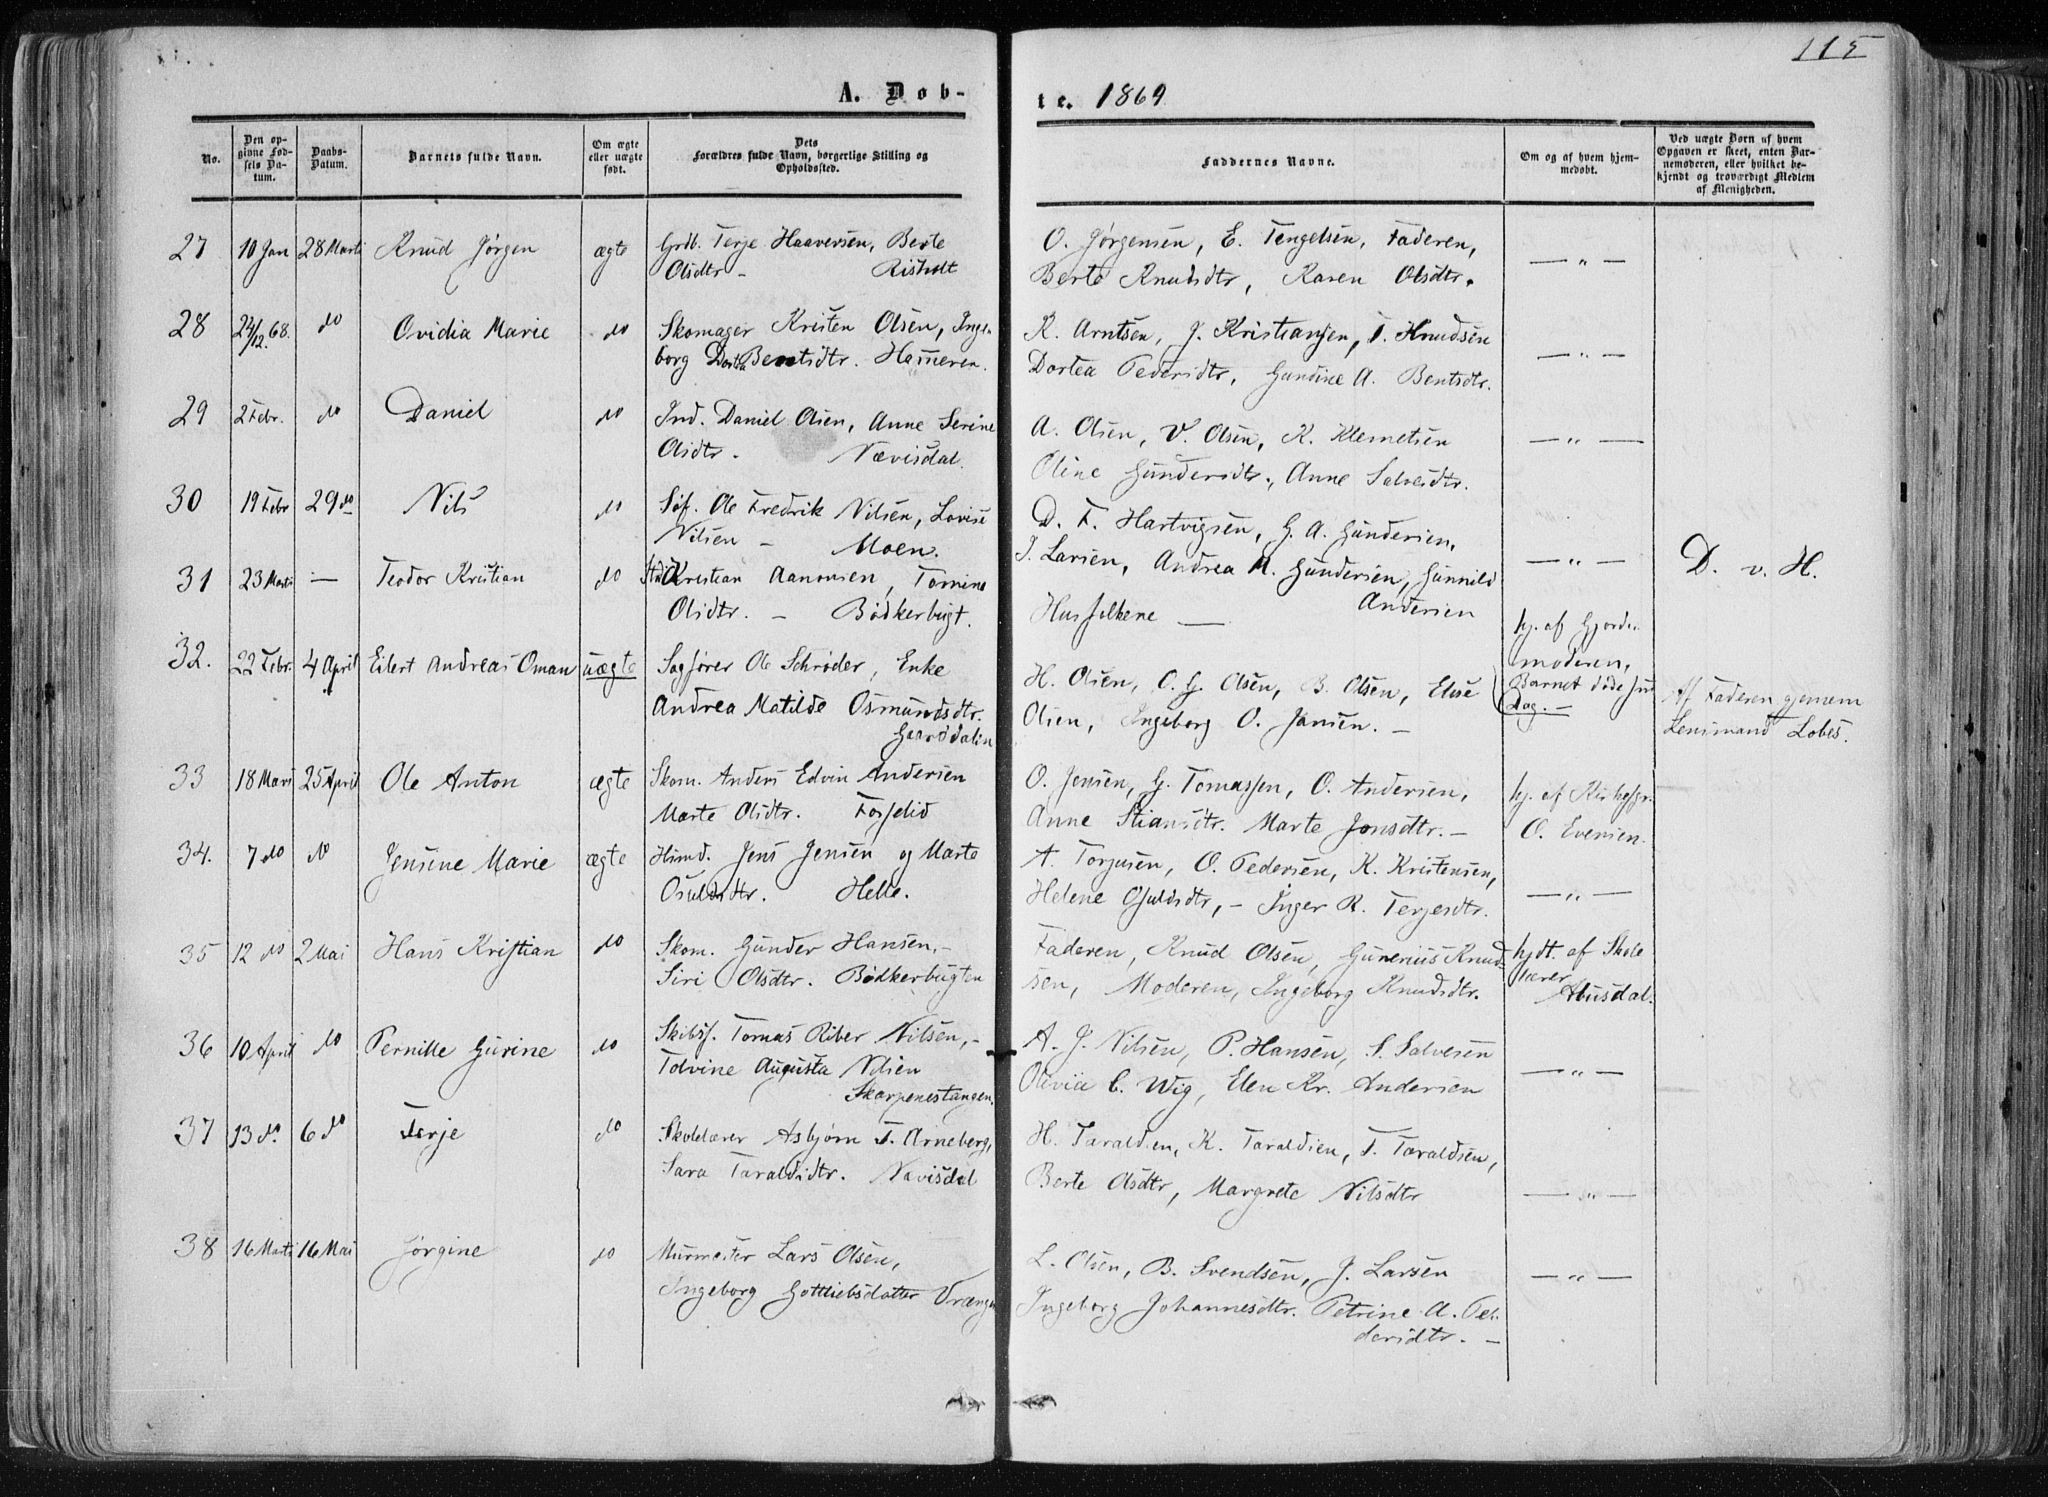 115
A. Døb-
te. 1869
No.
Den op-
givne Fød-
sels Da-
tum.
Daabs-
Datum.
Barnets fulde Navn.
Om ægte
eller uægte
født.
Dets
Forældres fulde Navn, borgerlige Stilling og
Opholdssted.
Faddernes Navne.
Om og af hvem hjem-
medøbt.
Ved uægte Børn af hvem
Opgaven er skeet, enten Bar-
nemoderen, eller hvilket be-
kjendt og troværdigt Medlem
af Menigheden.
27 10 Jan 28 Marti Knud Jørgen ægte Grdb. Terje Haaversen, Berte
Olsdtr - Risholt
O. Jørgensen, E. Tengelsen, Faderen, — " —
Berte Knudsdtr, Karen Olsdtr.
28 24/12 68. do Ovidia Marie do Skomager Kristen Olsen, Inge-
borg Dortea Bentsdtr. Hammeren.
K. Arntsen, J. Kristiansen, T. Knudsen
Dortea Pedersdtr, Gundine A. Bentsdtr. — " —
29 2 Febr. do Daniel do Ind. Daniel Olsen, Anne Serine
Olsdtr. Nævisdal.
A. Olsen, V. Olsen, K. Klemetsen — " —
Oline Gundersdtr., Anne Salvesdtr.
30 19 Febr 29 do Nils do Søf. Ole Fredrik Nilsen, Lovise
Nilsen - Moen.
D. F. Hartvigsen, G. A. Gundersen,
J. Larsen, Andrea M. Gundersen, Gunnild — " — D. v. H.
Andersen
31 23 Marti — Teodor Kristian do Kristian Aanonsen, Tomine
Olsdtr. - Bødkerbugt.
Husfolkene — hj. af Gjorde-
moderen,
Barnet døde
Dag. —
32. 22 Febr. 4 April Eilert Andreas Oman uægte Sagfører Ole Schrøder, Enke
Andrea Matilde Osmundsdtr.
Gaardalen
H. Olsen, O. G. Olsen, B. Olsen, Elise
Olsen, Ingeborg O. Jansen. —
Af Faderen gjennem
Lensmand Lobes.
33 18 Mars 25 April Ole Anton ægte Skom. Anders Edvin Andersen
Marte Olsdtr. Fosselid
O. Jensen, G. Tomassen, O. Andersen, hj. af
Anne Stiansdtr. Marte Jonsdtr. — O. Evensen.
34. 7 do do Jensine Marie ægte Husmd. Jens Jensen og Marte
Osuldsdtr. Helle.
A. Torjusen, O. Pedersen, K. Kristensen,
Helene Osuldsdtr, - Inger R. Terjesdtr. — " —
35 12 do 2 Mai Hans Kristian do Skom. Gunder Hansen, -
Siri Olsdtr. Bødkerbugten
Faderen, Knud Olsen, Gunerius Knud- hjdt. af Skole
sen, Moderen, Ingeborg Knudsdtr. lærer
Abusdal.
36 10 April do Pernille Gurine do Skibsf. Tomas Riber Nilsen, -
Tolvine Augusta Nilsen
Skarpenestangen.
A. J. Nilsen, P. Hansen, S. Salvesen
Olivia C. Wig, Elen Kr. Andersen — " —
37 13 do 6 do Terje do Skolelærer Asbjørn T. Arneberg,
Sara Taraldsdtr. Navisdal
H. Taraldsen, K. Taraldsen, T. Taraldsen,
Berte Olsdtr, Margrete Nilsdtr — " —
38 16 Marti 16 Mai Jørgine do Murmester Lars Olsen,
Ingeborg Gottliebsdatter Vrængen
L. Olsen, B. Svendsen, J. Larsen — " —
Ingeborg Johannesdtr. Petrine A. Pe-
dersdtr. —